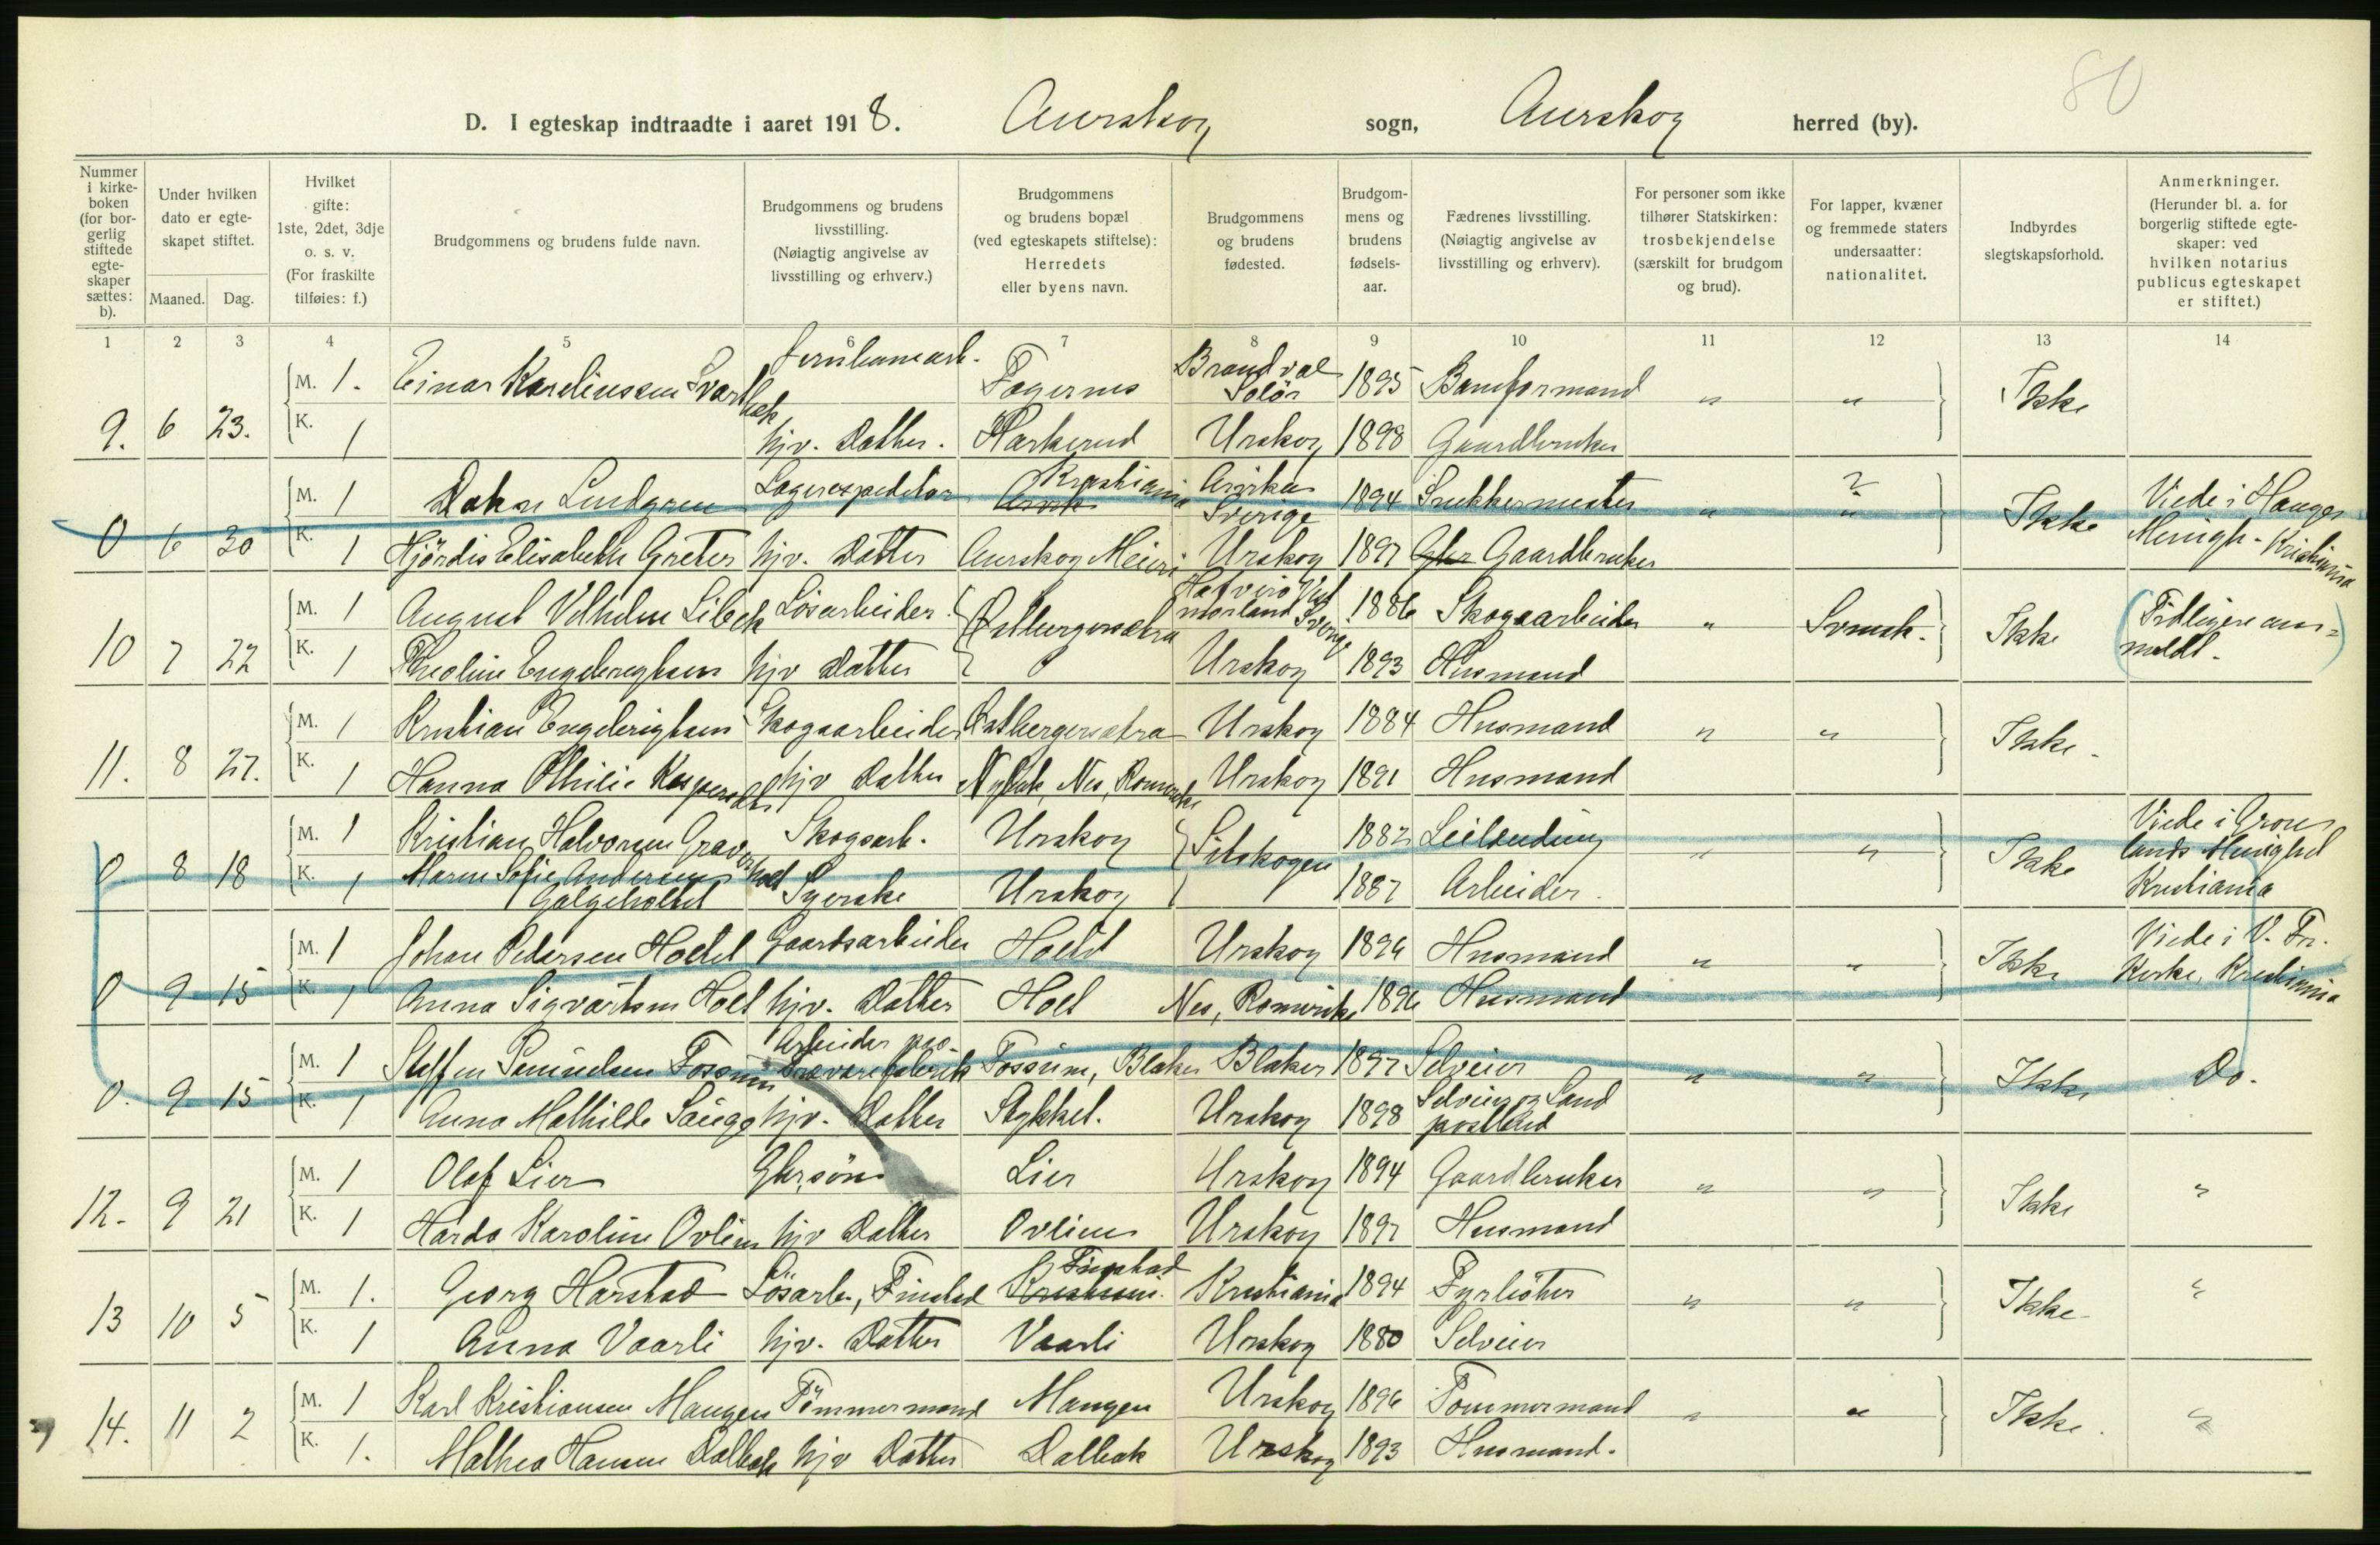 80
D. I egteskap indtraadte i aaret 1918. Aurskog sogn, Aurskog herred (by).
Nummer i kirkeboken (for borgerlig stiftede egteskaper sættes: b).
Under hvilken dato er egteskapet stiftet.
Maaned. Dag.
Hvilket gifte: 1ste, 2det, 3dje o. s. v. (For fraskilte tilføies: f.)
Brudgommens og brudens fulde navn.
Brudgommens og brudens livsstilling. (Nøiagtig angivelse av livsstilling og erhverv.)
Brudgommens og brudens bopæl (ved egteskapets stiftelse): Herredets eller byens navn.
Brudgommens og brudens fødested.
Brudgommens og brudens fødselsaar.
Fædrenes livsstilling. (Nøiagtig angivelse av livsstilling og erhverv).
For personer som ikke tilhører Statskirken: trosbekjendelse (særskilt for brudgom og brud).
For lapper, kvæner og fremmede staters undersaatter: nationalitet.
Indbyrdes slegtskapsforhold.
Anmerkninger. (Herunder bl. a. for borgerlig stiftede egteskaper: ved hvilken notarius publicus egteskapet er stiftet.)
1 2 3 4 5 6 7 8 9 10 11 12 13 14
9. 6 23. M. 1. Einar Kareliussen Svartbæk Fagernes Brandval Solör 1895 Baneformand " " Ikke
K. 1 hjv. Datter. Harkerud Urskog 1898 Gaardbruker
0 6 30 M. 1 Lindgren Lagerexpeditør Kristiania Arvika Sverige 1894 Snekkermester " ? " Ikke Viede i Hauges Menigh. Kristiania
K. 1 Hjördis Elisabeth Greter hjv. Datter Aurskog Meieri Urskog 1897 Gaardbruker
10 7 22 M. 1 August Vilhelm Libek Løsarbeider Østbergersætra Sverige 1886 Skogsarbeider " Svensk. Ikke (Tidligere anmeldt.)
K. 1 Theoline Engebregtsen hjv Datter Urskog 1893 Husmand
11. 8 27. M. 1 Kristian Engebrigtsen Skogsarbeider Østbergersætra Urskog 1884 Husmand " " Ikke.
K. 1 Hanna Othilie Kaspersen hjv Datter Nybak, Nes, Romerike Urskog 1891 Husmand
0 8 18 M. 1 Kristian Halvorsen Graverholt Skogsarb. Urskog Setskogen 1882 Leilending " " Ikke Viede i Grønlands Menighed Kristiania
K. 1 Maren Sofie Andersen Galgeholtet Syerske Urskog 1887 Arbeider.
0 9 15 M. 1 Johan Pedersen Hoelet Gaardsarbeider Hoelet Urskog 1896 Husmand " " Ikke Viede i V. Fr. Kirke, Kristiania
K. 1 Anna Sigvartsen Hoel hjv. Datter Hoel Nes, Romerike 1896 Husmand
0. 9 15 M. 1 Steffen Fossum Arbeider paa Trævarefabrik Fossum, Blaker Blaker 1897 Selveier " " Ikke Do.
K. 1 Anna Mathilde hjv. Datter Stykket. Urskog 1898 Selveier og Landpostbud
12. 9 21 M. 1 Olaf Lier Gbr. sön Lier Urskog 1894 Gaardbruker " " Ikke "
K. 1 Karoline Ovlien hjv Datter Ovlien Urskog 1897 Husmand
13 10 5 M. 1. Georg Harstad Lösarb., Finstad Finstad Kristiania 1894 Fyrböter " " Ikke "
K. 1 Anna Vaarli hjv. Datter Vaarli Urskog 1880 Selveier
14. 11 2 M. 1 Karl Kristiansen Mangen Tömmermand Mangen Urskog 1896 Tömmermand " " Ikke. "
K. 1. Mathea Hansen Dalbak hjv Datter Dalbak Urskog 1893 Husmand.